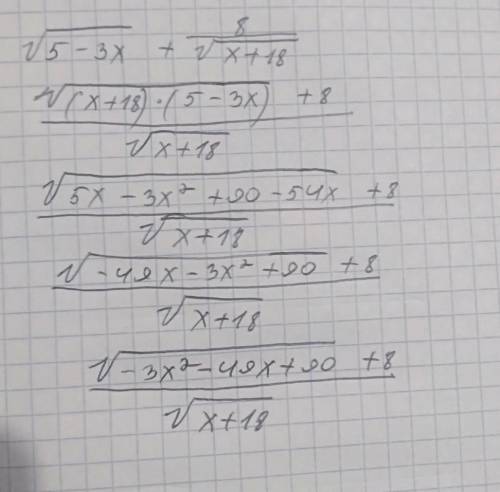 √(5 - 3x) + 8/√(x+18)
(√((x+18)·(5-3x)) + 8)/√(x+18)
(√(5x - 3x² + 90 - 54x) + 8)/√(x+18)
(√(-49x - 3x² + 90) + 8)/√(x+18)
(√(-3x² - 49x + 90) + 8)/√(x+18)